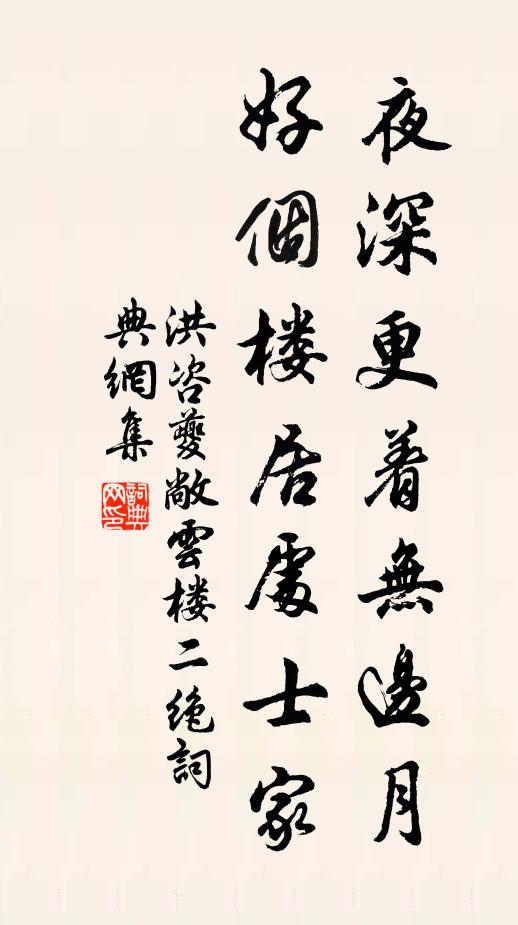 夜深更着無邊月
好個楼居處士家
洪咨夔敞雲楼二绝詞
典網集
詞典网印